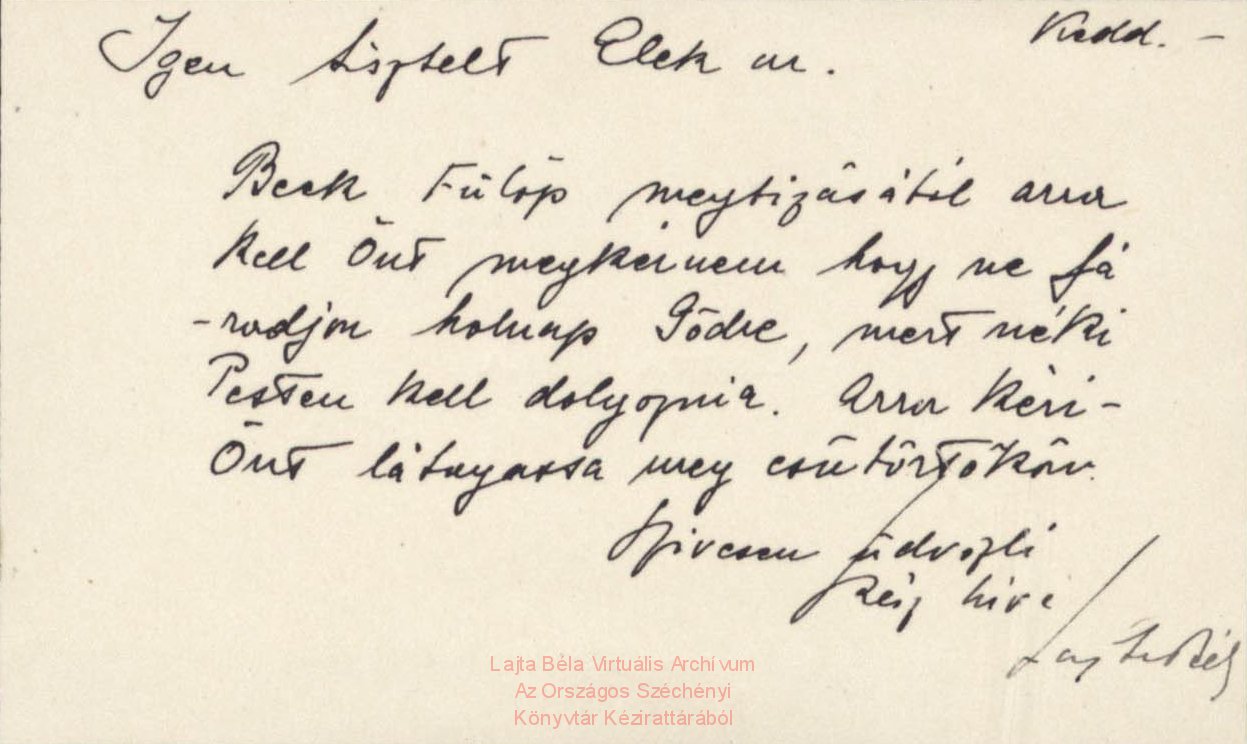 Kedd. –
Igen tisztelt Elek úr.
Beck Fülöp megbizásából arra
kell Önt megkérnem hogy ne fá
-radjon holnap Gödre, mert néki
Pesten kell dolgoznia. Arra kéri-
Önt látogassa meg csütörtökön.
Szivesen üdvözli
kész hive
Lajta Béla
Lajta Béla Virtuális Archívum
Az Országos Széchényi
Könyvtár Kézirattárából